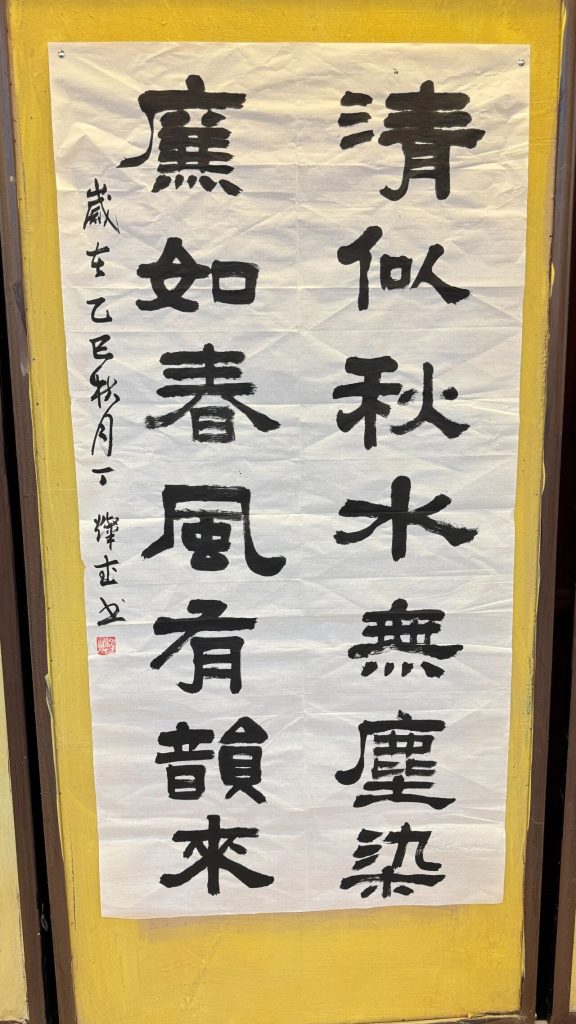 清似秋水無塵染
廉如春風有韻來
歲在乙巳秋月丁
書